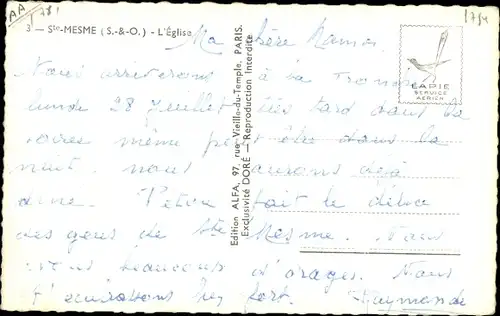 AA 781
1794
3 — Ste-MESME (S.-&-O.) - L'Église
Ma chère Maman
LAPIE
SERVICE
AÉRIEN
Edition ALFA, 97, rue Vieille-du-Temple, PARIS.
Exclusivité DORÉ — Reproduction Interdite
Nous arriverons à la
lundi 28 Juillet très tard dans la
soirée même peut être dans la
nuit. nous aurons déjà
diné. fait le délice
des gens de Ste Mesme. Nous
avons beaucoup d'orages. Nous
t'embrassons bien fort. Raymonde